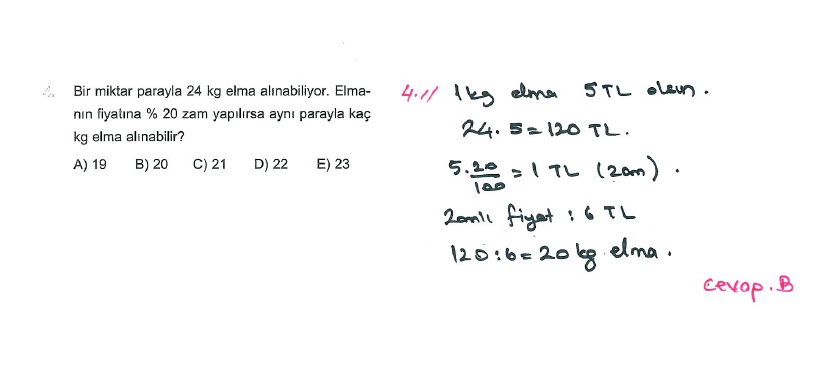 4. Bir miktar parayla 24 kg elma alınabiliyor. Elma-
nın fiyatına % 20 zam yapılırsa aynı parayla kaç
kg elma alınabilir?
A) 19 B) 20 C) 21 D) 22 E) 23
4.// 1kg elma 5TL olsun.
24. 5 = 120 TL.
5. 20/100 = 1 TL (zam).
Zamlı fiyat : 6 TL
120 : 6 = 20 kg elma.
cevap. B